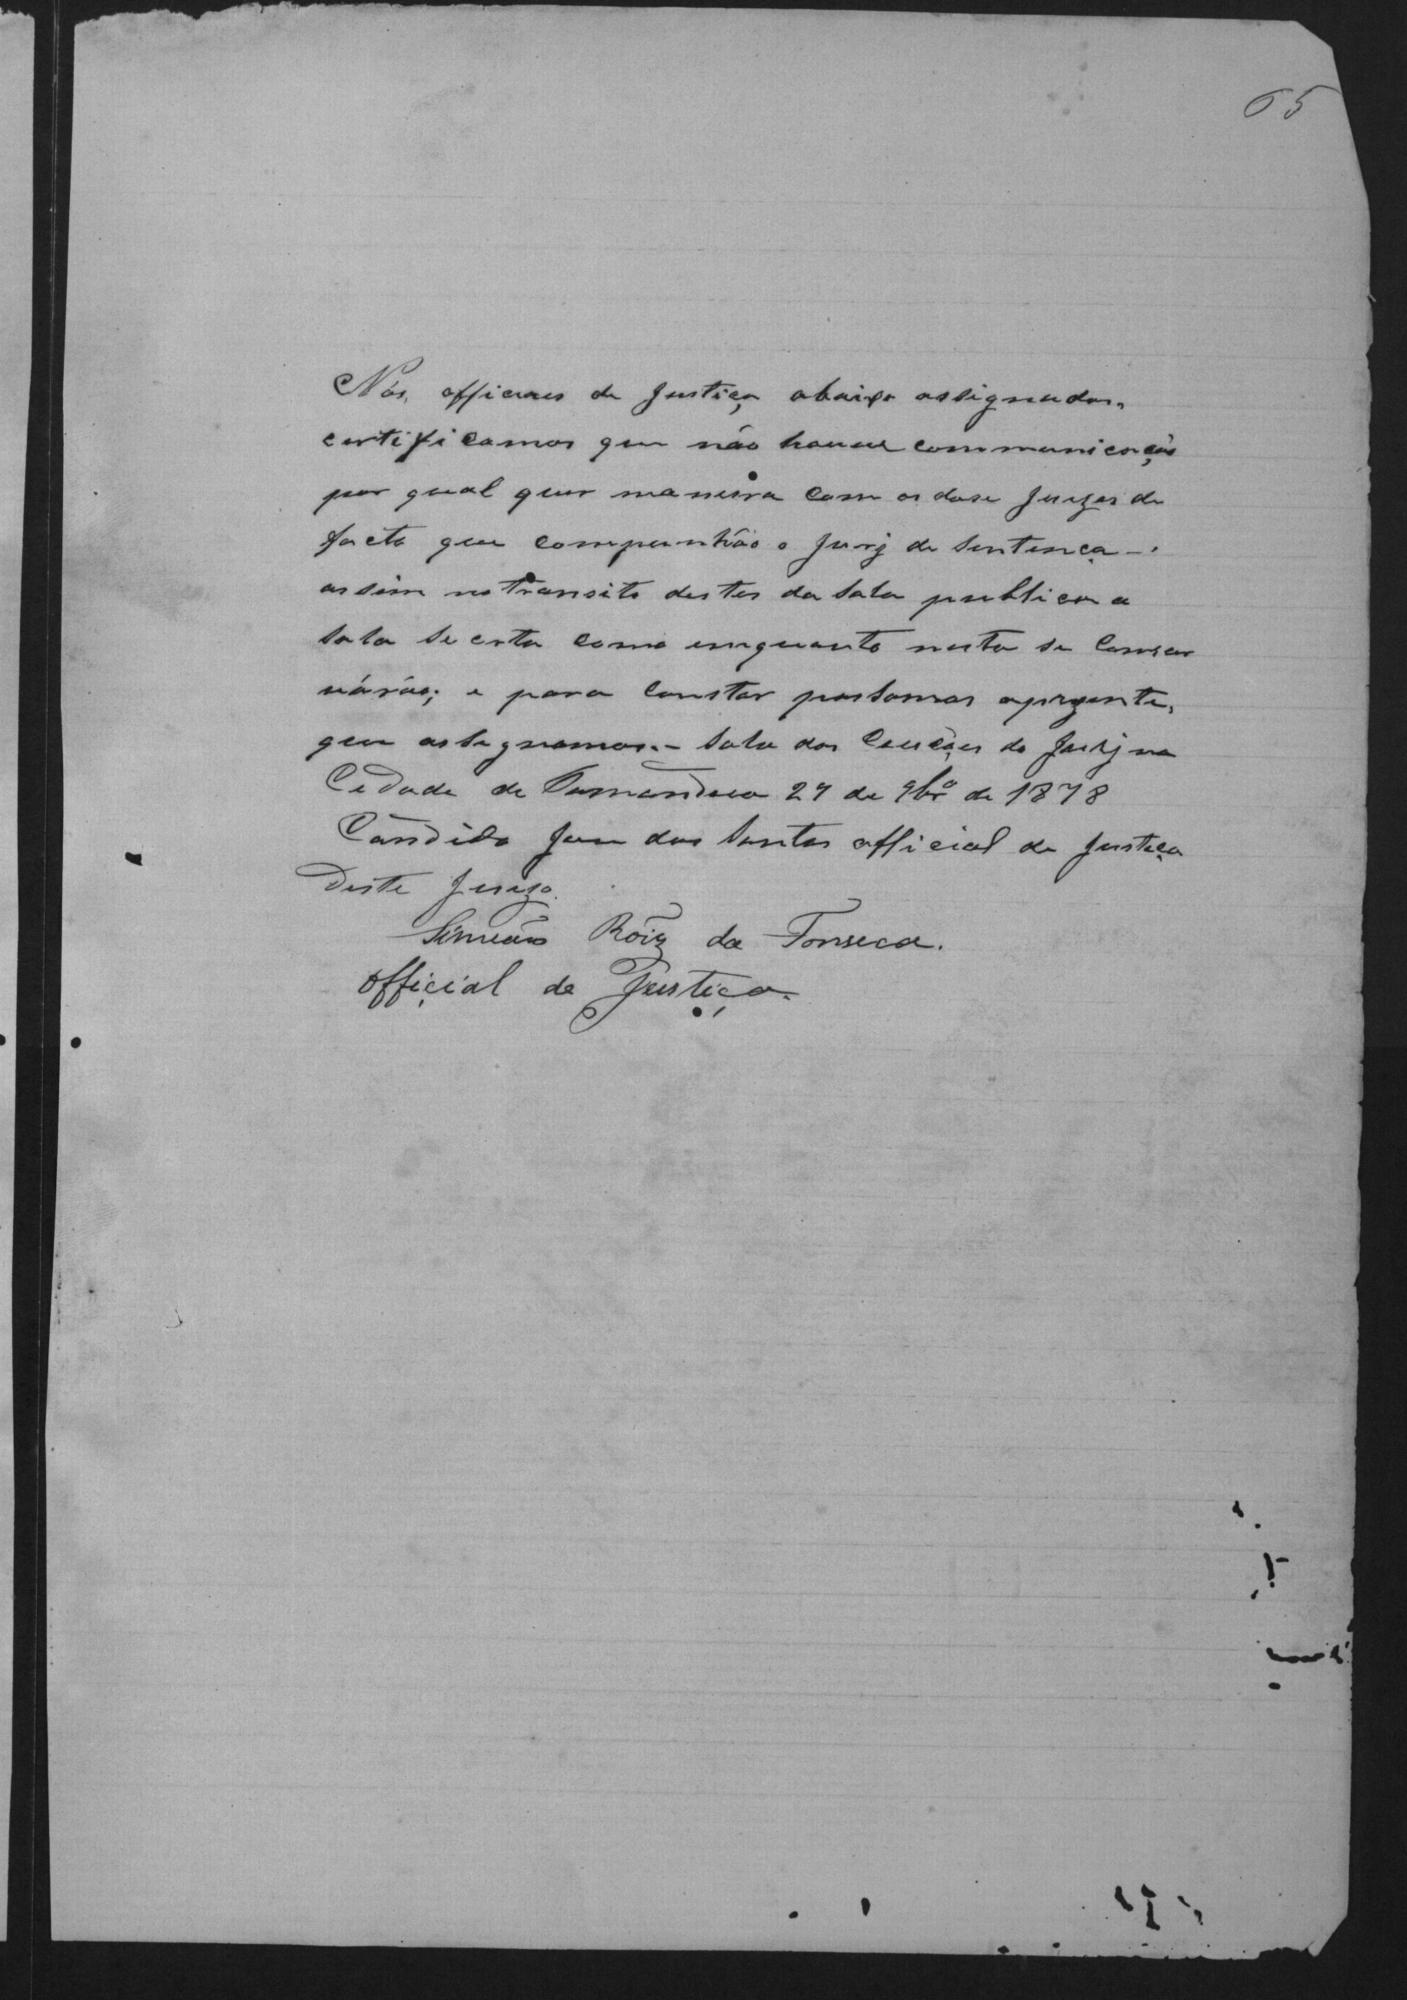 65
Nós, officiaes de Justiça abaixo assignados,
certificamos que não houve communicação
por qual quer maneira com os dose Juizes de
facto que compunhão o Jury de Sentença -
assim no transito destes da Sala publica a
Sala Secreta como emquanto nesta se Conser
várão; e para Constar passamos aprezente,
que assignamos. - Sala das Cesções do Jury na
Cidade de Tamanduá 27 de 9br.º de 1878
Cândido José dos Santos official de Justiça
deste Juizo.
Simeão Roiz da Fonseca.
official de Justiça.